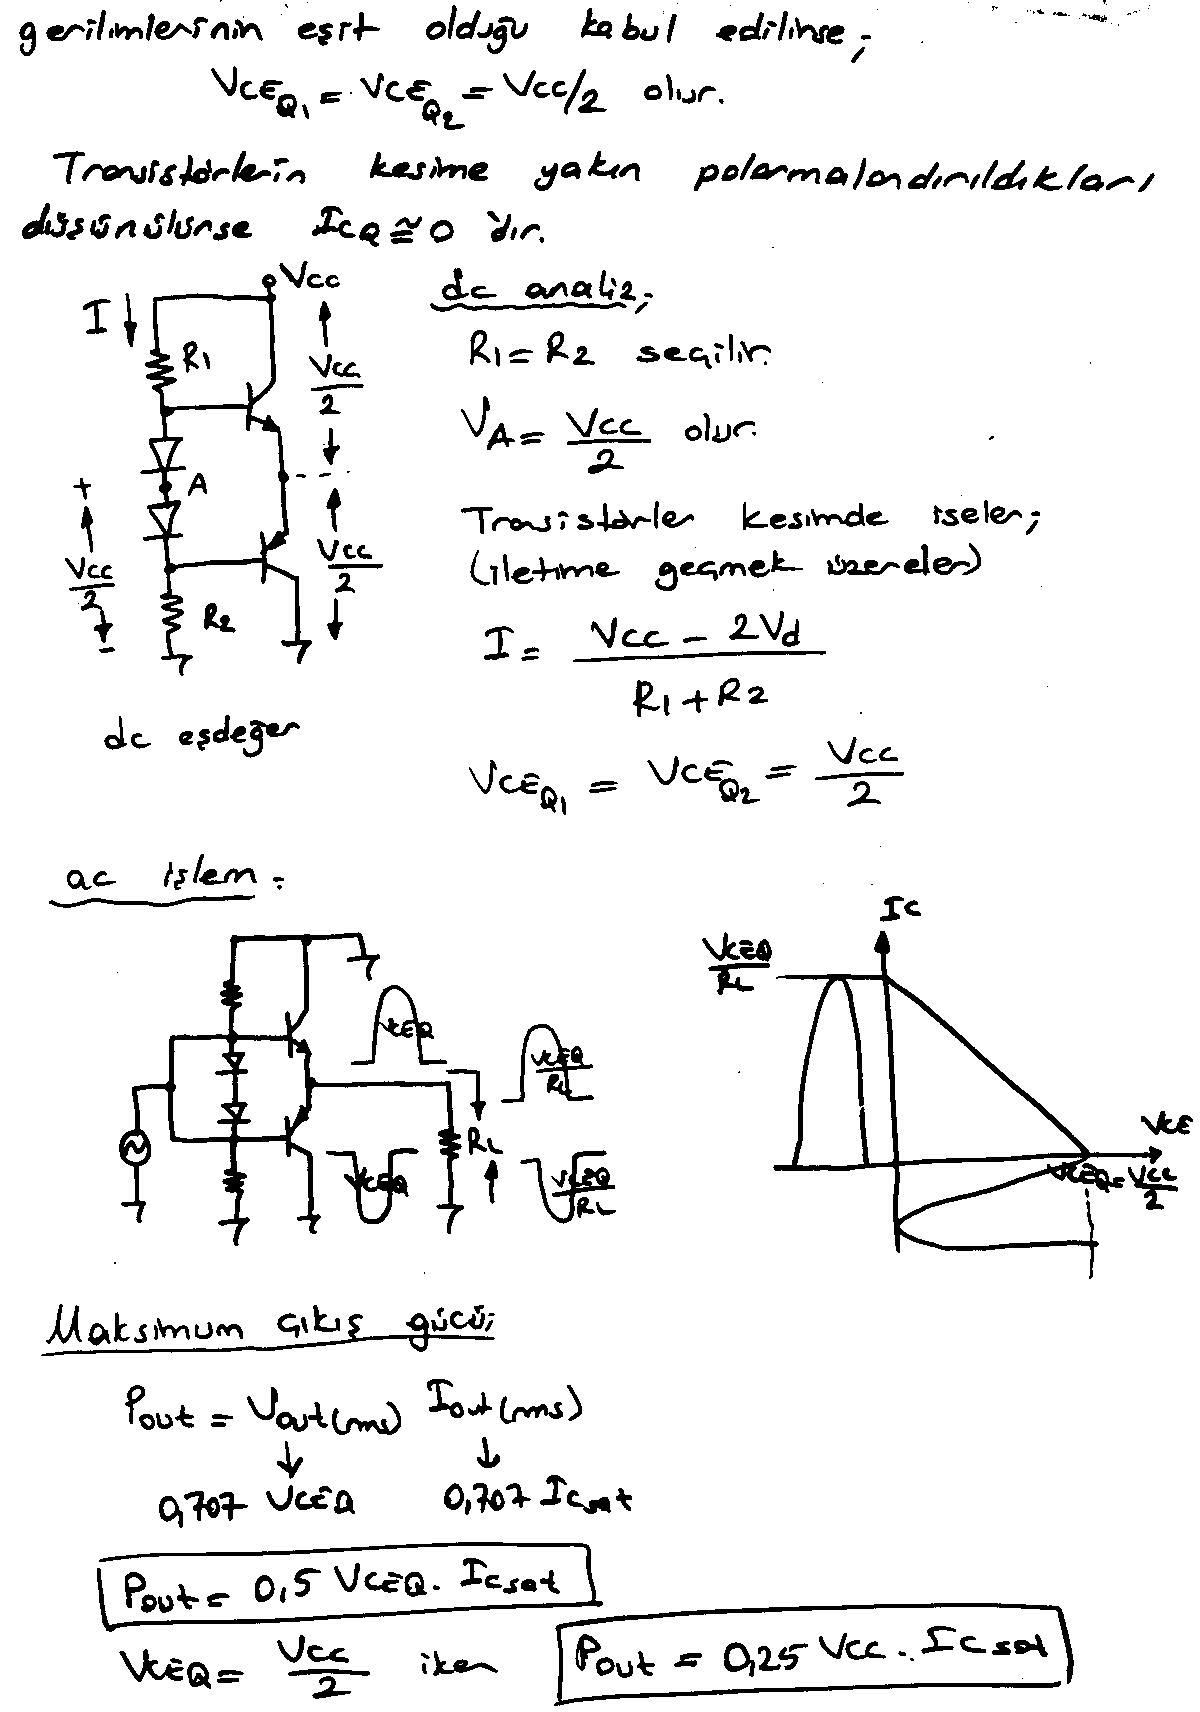 gerilimlerinin eşit olduğu kabul edilirse;
VCEQ1 = VCEQ2 = VCC/2 olur.
Transistörlerin kesime yakın polarmalandırıldıkları
düşünülürse ICQ ≅ 0 'dır.
VCC
I
R1
VCC/2
A
+
VCC/2
-
VCC/2
R2
dc eşdeğer
dc analiz;
R1 = R2 seçilir.
VA = VCC/2 olur.
Transistörler kesimde iseler;
(iletime geçmek üzereler)
I = (VCC - 2Vd) / (R1 + R2)
VCEQ1 = VCEQ2 = VCC/2
ac işlem:
VCEQ
VCEQ/RL
RL
VCEQ
VCEQ/RL
IC
VCEQ/RL
VCE
VCEQ = VCC/2
Maksimum çıkış gücü;
Pout = Vout(rms) Iout(rms)
↓ ↓
0,707 VCEQ 0,707 ICsat
Pout = 0,5 VCEQ . ICsat
VCEQ = VCC/2 iken Pout = 0,25 VCC . ICsat